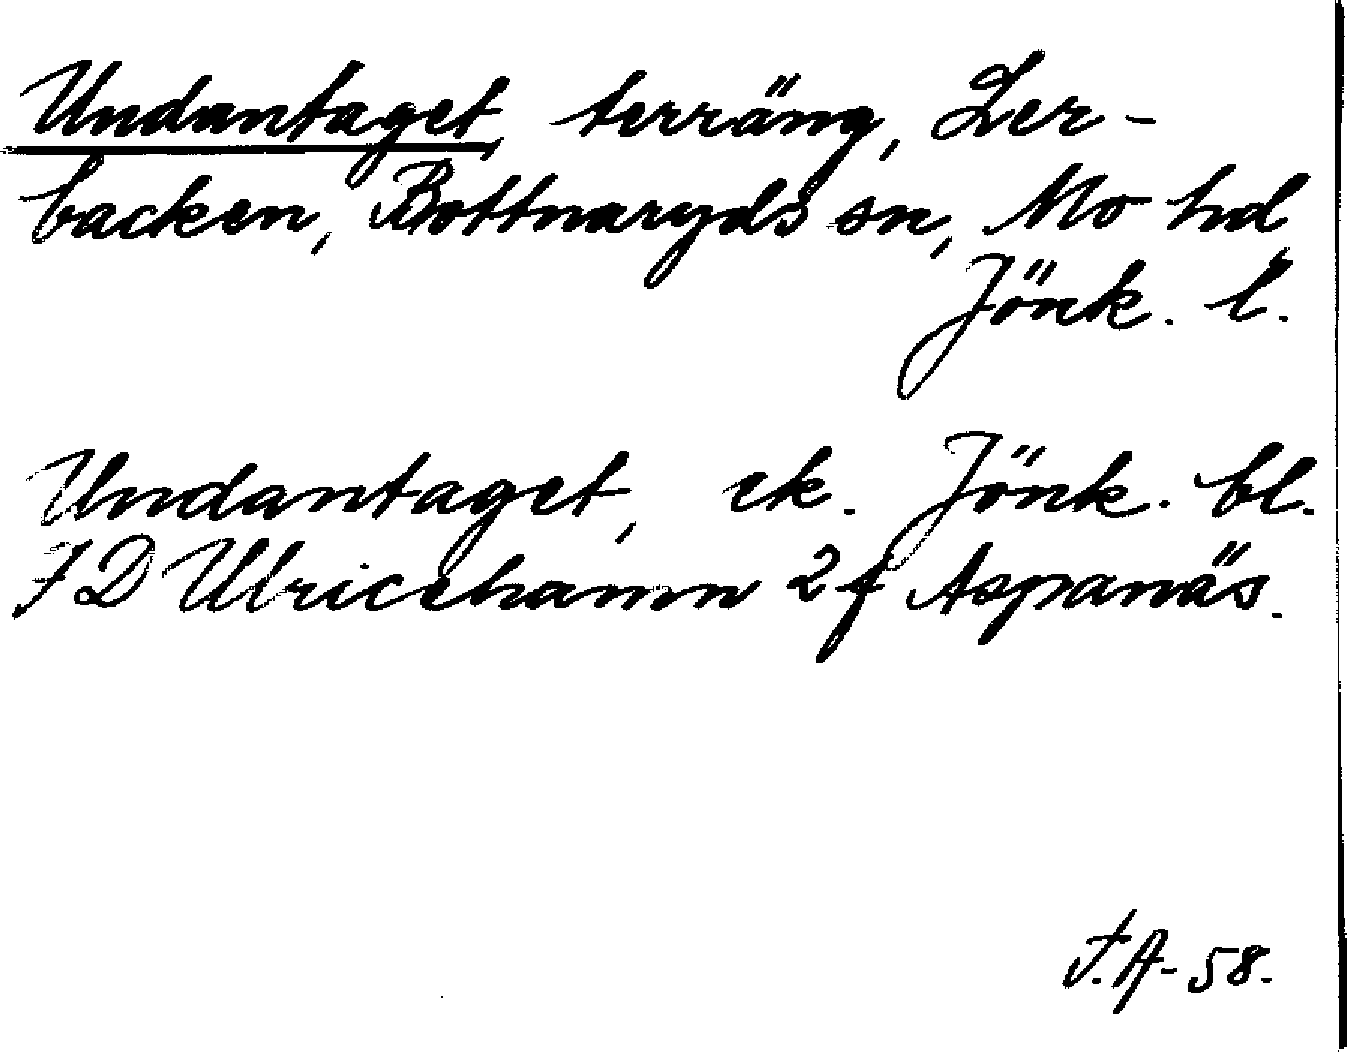 Undantaget, terräng, Ler-
backen, Bottnaryds sn, Mo hd,
Jönk. l.
Undantaget, ek. Jönk. bl.
7D Ulricehamn 2f Aspanäs.
F.A-58.